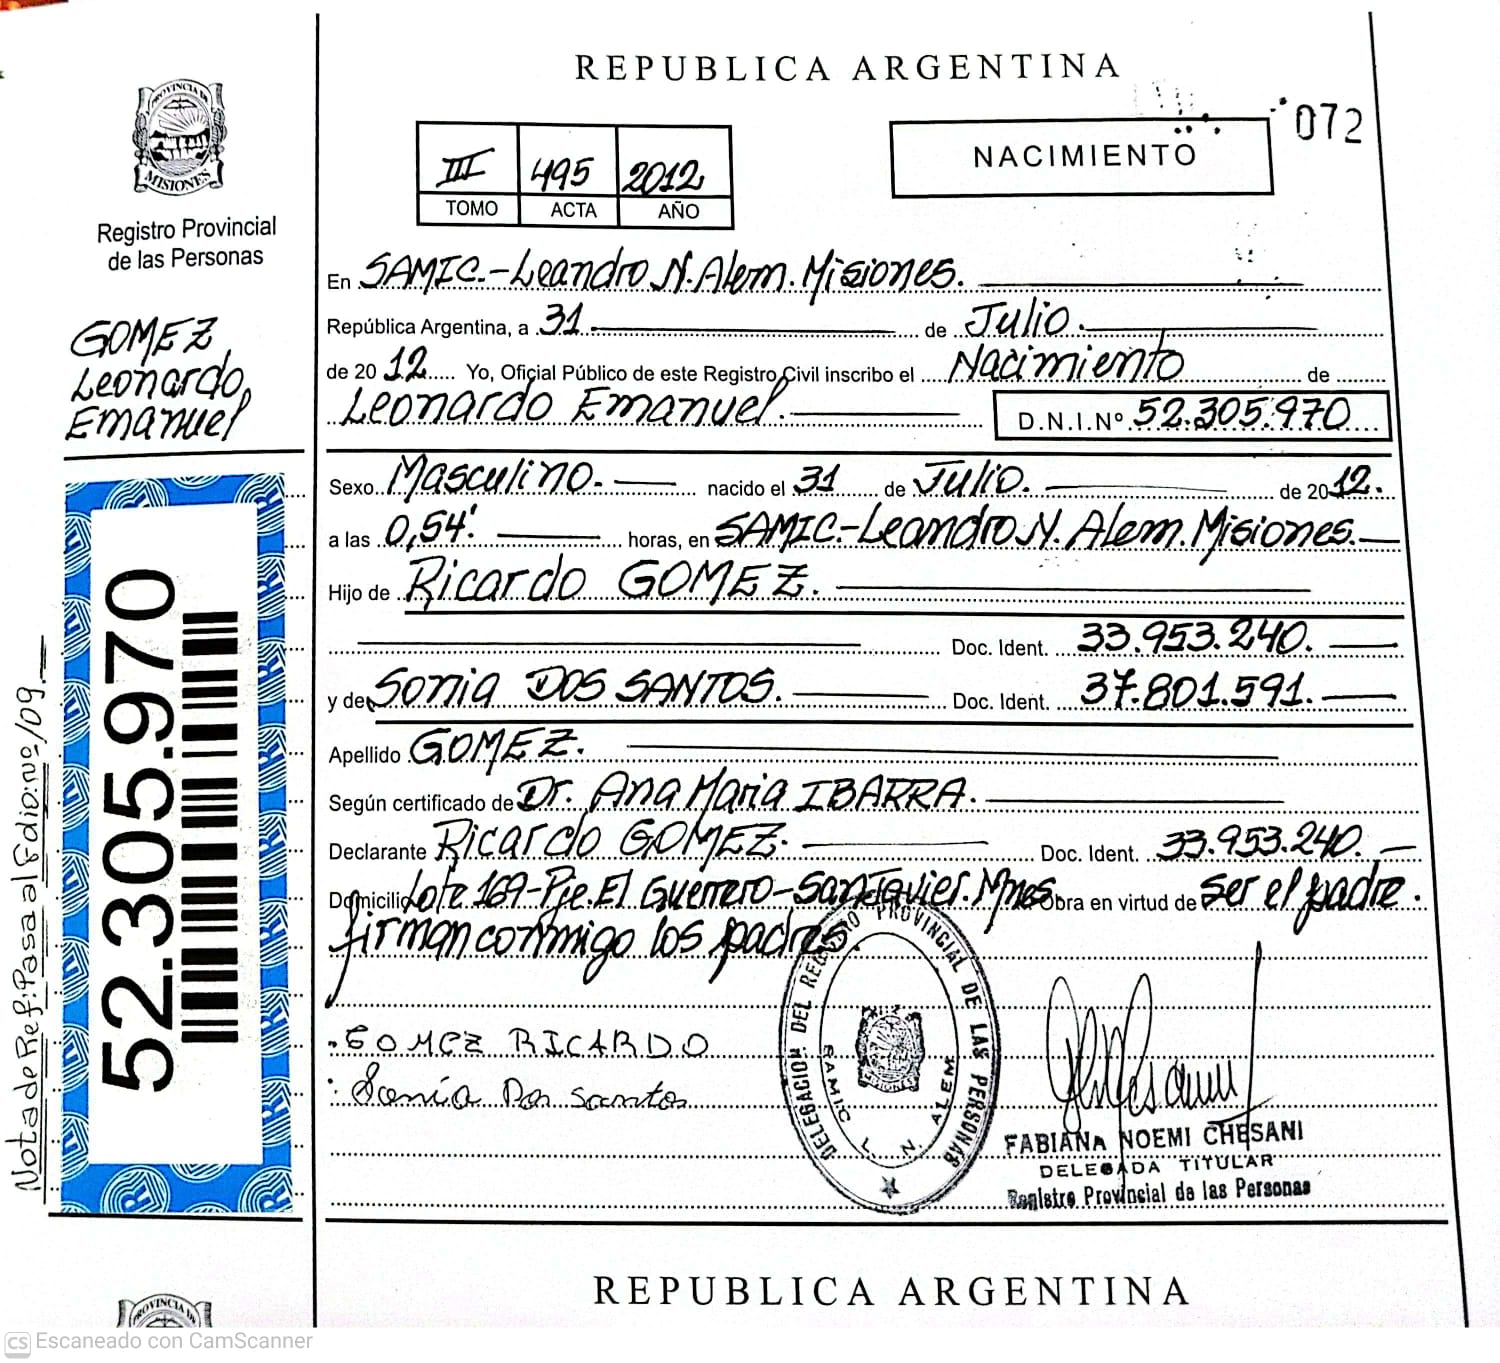 REPUBLICA ARGENTINA
072
PROVINCIA DE
MISIONES
Registro Provincial
de las Personas
III 495 2012
TOMO ACTA AÑO
NACIMIENTO
En SAMIC.-Leandro.N.Alem.Misiones.
República Argentina, a 31 de Julio.
de 2012 Yo, Oficial Público de este Registro Civil inscribo el Nacimiento de
Leonardo Emanuel. D.N.I.Nº 52.305.970
GOMEZ
Leonardo,
Emanuel
Sexo Masculino. nacido el 31 de Julio. de 2012.
a las 0,54' horas, en SAMIC.-Leandro.N.Alem.Misiones.
Hijo de Ricardo GOMEZ.
Doc. Ident. 33.953.240.
y de Sonia DOS SANTOS. Doc. Ident. 37.801.591.
Apellido GOMEZ.
Según certificado de Dr. Ana Maria IBARRA.
Declarante Ricardo GOMEZ. Doc. Ident. 33.953.240.
Domicilio Lote 169-Pje.El Guerrero-San Javier.Mnes Obra en virtud de ser el padre.
firman conmigo los padres.
GOMEZ RICARDO
Sonia Dos santos
DELEGACION DEL REGISTRO PROVINCIAL DE LAS PERSONAS
SAMIC L. N. ALEM
FABIANA NOEMI CHESANI
DELEGADA TITULAR
Registro Provincial de las Personas
52.305.970
Nota de Ref: Pasa al Fdio:nº:/09.
REPUBLICA ARGENTINA
PROVINCIA DE
CS Escaneado con CamScanner